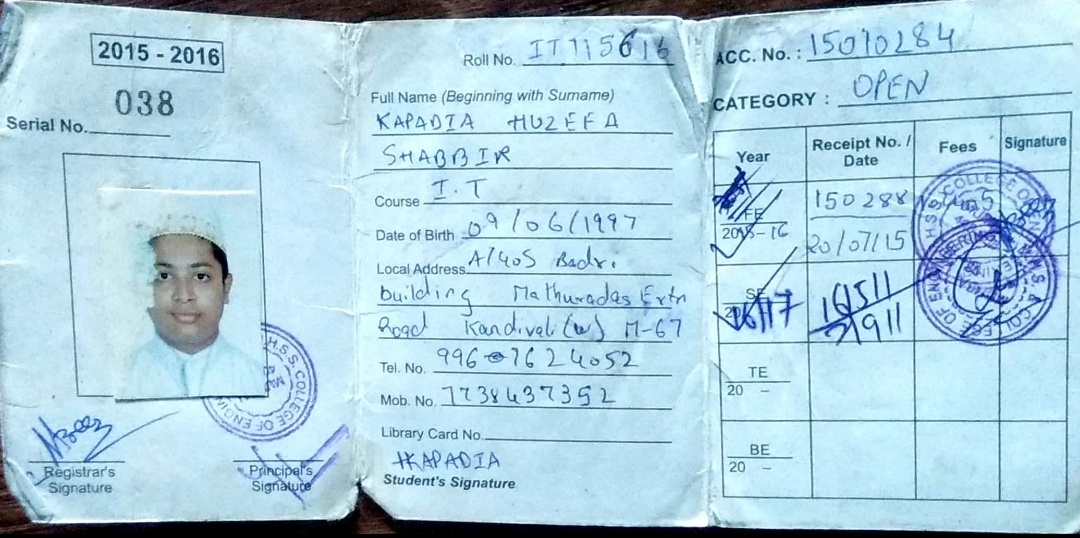 2015 - 2016
038
Serial No.
Registrar's Signature
Principal's Signature
Roll No. IT115616
Full Name (Beginning with Surname)
KAPADIA HUZEFA
SHABBIR
Course I.T
Date of Birth 09/06/1997
Local Address A/405 Badri
building Mathuradas Extn
Road Kandivali (w) M-67
Tel. No. 996 7624052
Mob. No. 7738437392
Library Card No.
HKAPADIA
Student's Signature
ACC. No. : 15010284
CATEGORY : OPEN
Year Receipt No. / Date Fees Signature
FE 150288
2015-16 20/07/15
SE 161511
2016/17
TE
20 –
BE
20 –
H.S.S. COLLEGE OF ENGIN